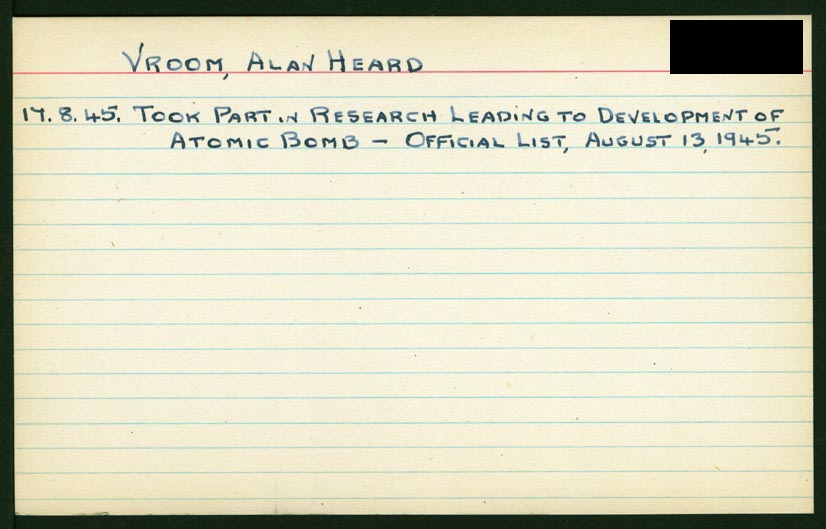 VROOM, ALAN HEARD
17.8.45. TOOK PART IN RESEARCH LEADING TO DEVELOPMENT OF
ATOMIC BOMB – OFFICIAL LIST, AUGUST 13, 1945.